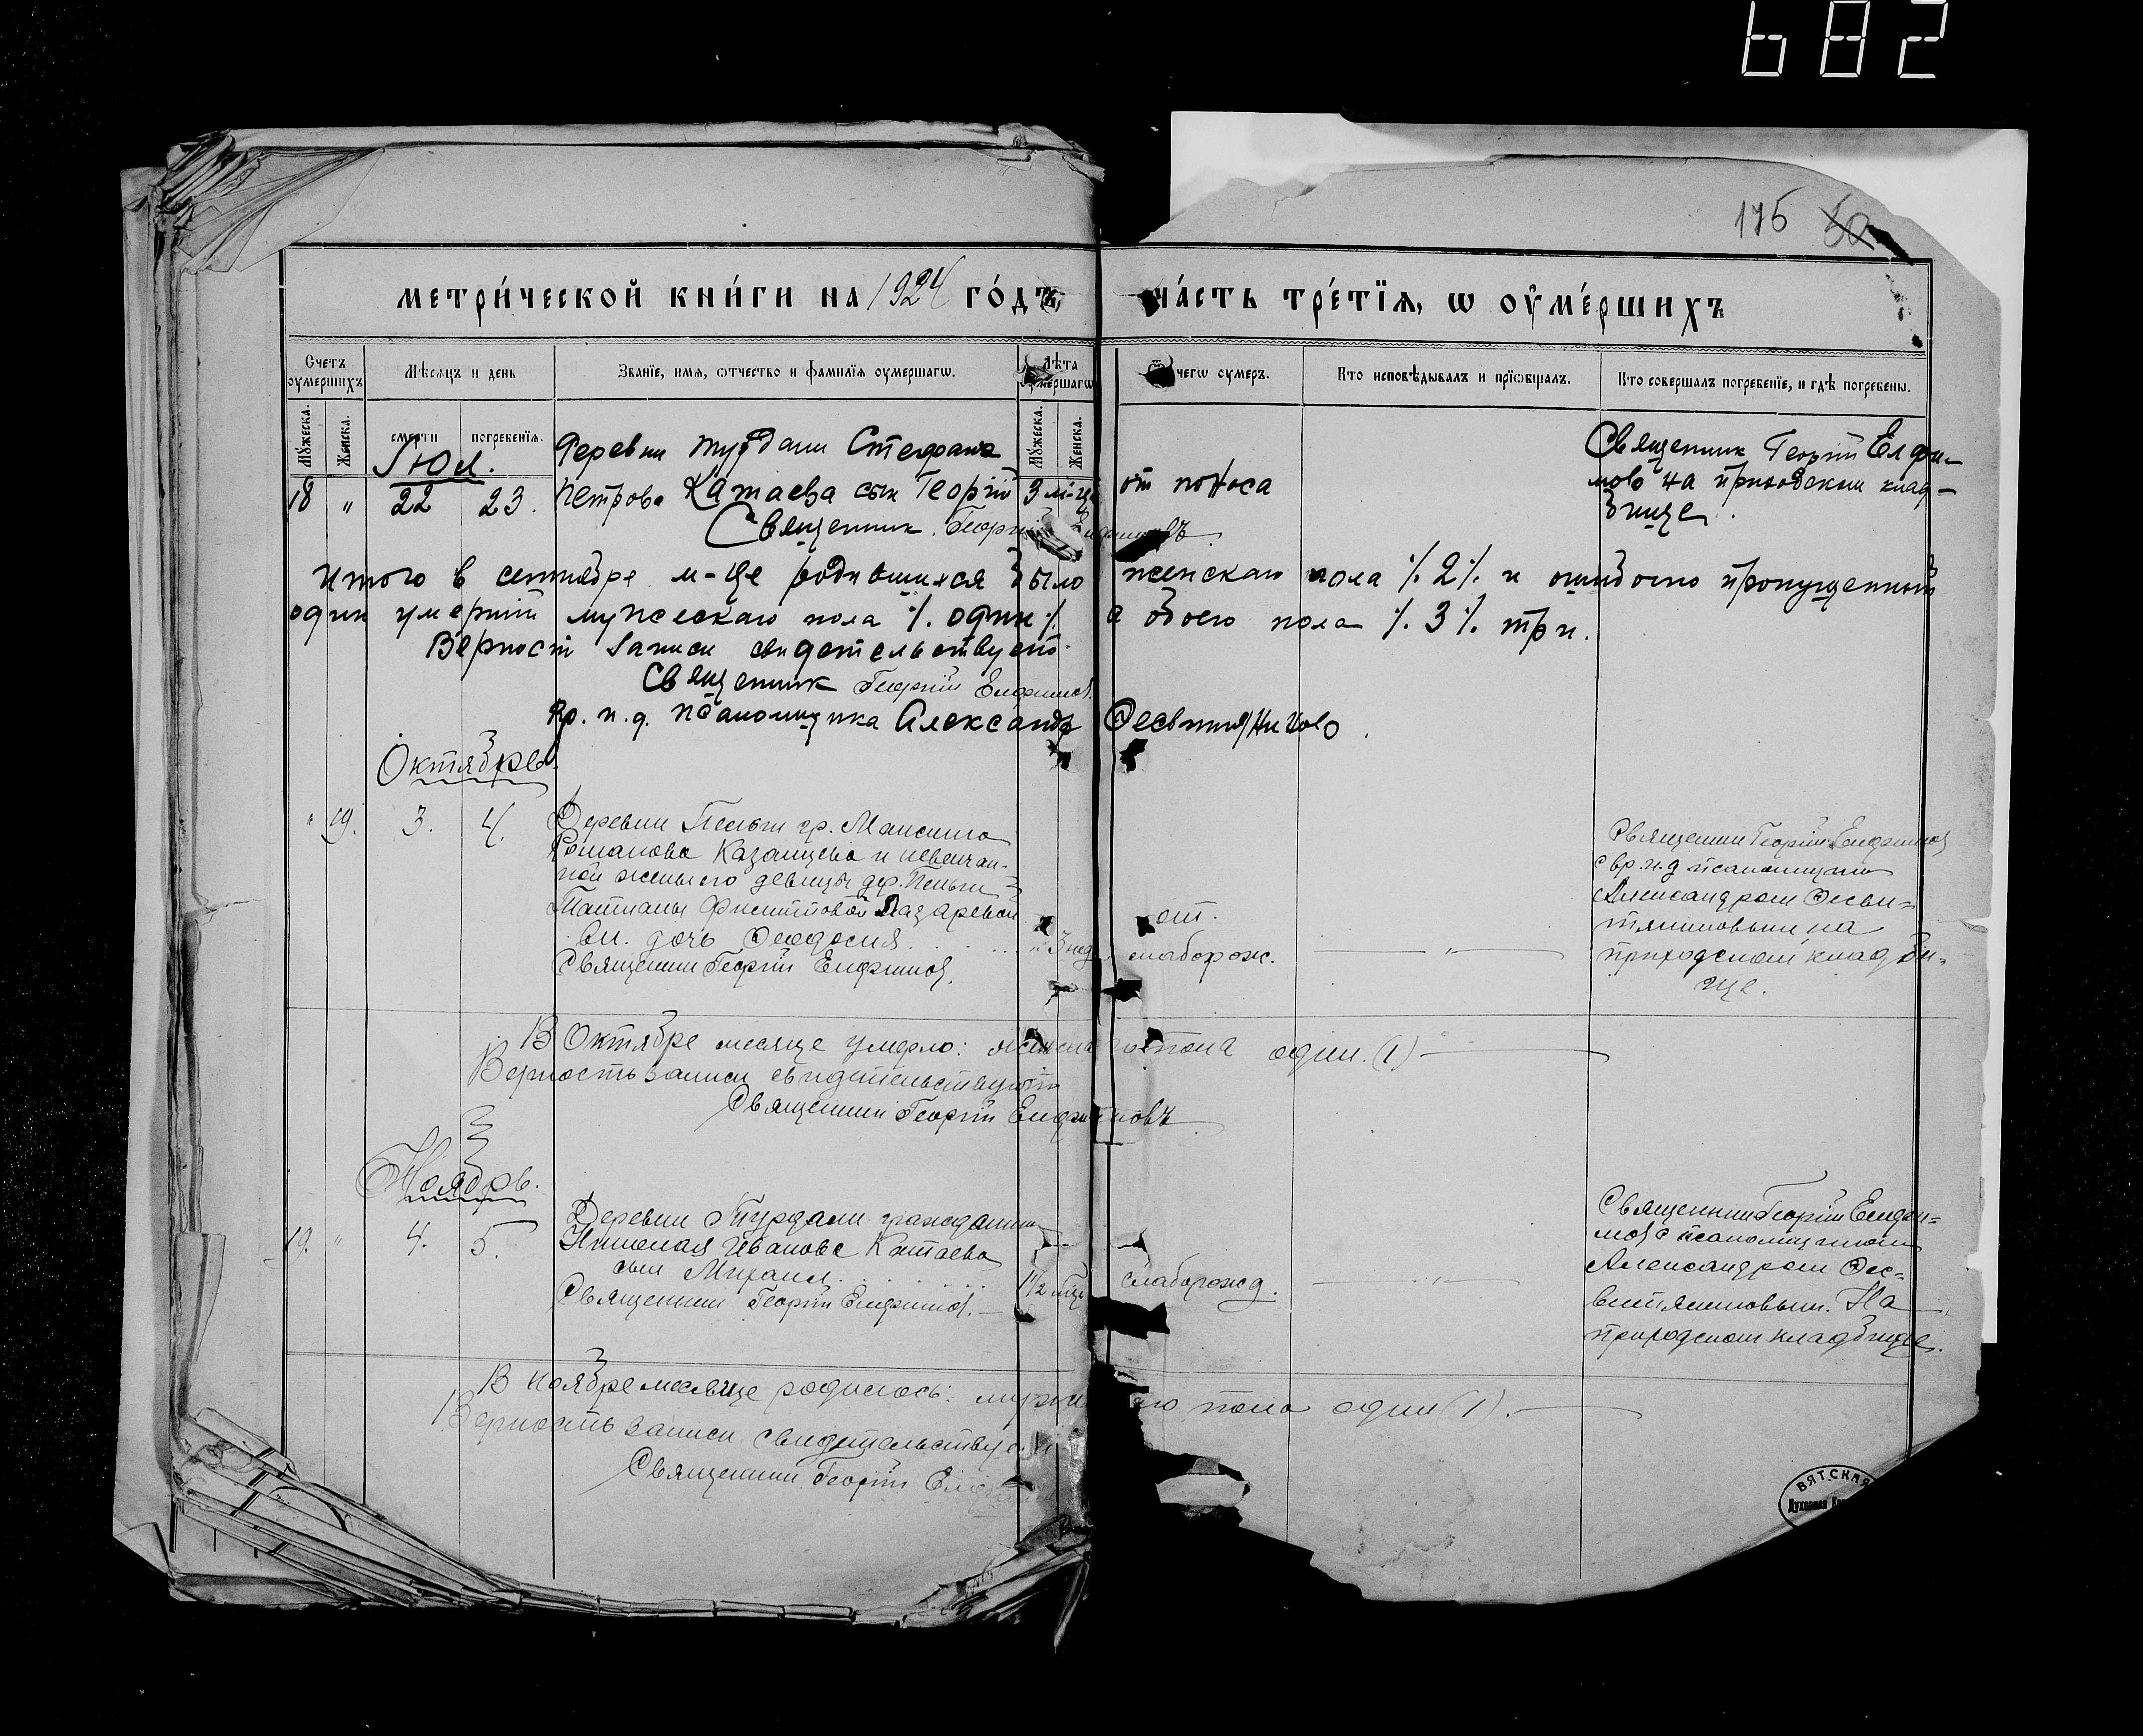 682
175 50
МЕТРИ́ЧЕСКОЙ КНИ́ГИ НА 1924 ГО́ДЪ, ЧА́СТЬ ТРЕ́ТЇѦ, Ѡ ОУ҆МЕ́РШИХЪ
Счетъ оумершихъ
Мѣсяцъ и день
Званїе, имѧ, ѿтчество и фамилїѧ оумершагѡ.
Лѣта оумершагѡ
чегѡ оумеръ.
Кто исповѣдывалъ и прїѡбщалъ.
Кто совершалъ погребенїе, и гдѣ погребены.
Мужеска.
Женска.
смерти
погребенїѧ.
Мужеска.
Женска.
Июл.
18 " 22 23.
Деревни Турдали Стефана
Петрова Катаева сын Георгiй 3 м-ца
от поноса
Священник Георгiй Елфи-
мов на приходском клад-
бище.
Священник Георгiй Елфимовъ
Итого в сентябре м-це родившихся было женскаго пола ⁒ 2 ⁒ и ошибочно пропущенный
один умерший мужескаго пола ⁒ один ⁒ а обоего пола ⁒ 3 ⁒ три.
Верность записи свидетельствуют
Священник Георгiй Елфимов.
Вр. и. д. псаломщика Александр
Октябрь.
" 19. 3. 4.
Деревни гр. Максима
Романова Казанцева и невенчан-
ной жены его девицы дер.
Татианы Филипповой Лазаревой
вн. дочь Феодосия.
" 3 нед
Священник Георгiй Елфимов.
от
слаборож.
Священник Георгiй Елфимов
с вр. и. д псаломщика
Александром
на
приходском кладби-
ще.
В Октябре месяце умерло: женскаго пола один. (1)
Верность записи свидетельствуют
Священник Георгiй Елфимовъ
Ноябрь.
19. " 4. 5.
Деревни Турдали гражданина
Николая Иванова Катаева
сын Михаил.
1½ м-ца
Священник Георгiй Елфимов.
слаборожд.
Священник Георгiй Елфи-
мов с псаломщиком
Александром
На
приходском кладбище.
В ноябре месяце родилось: мужскаго пола один (1).
Верность записи свидетельствует
Священник Георгiй
ВЯТСКАЯ
Духовная